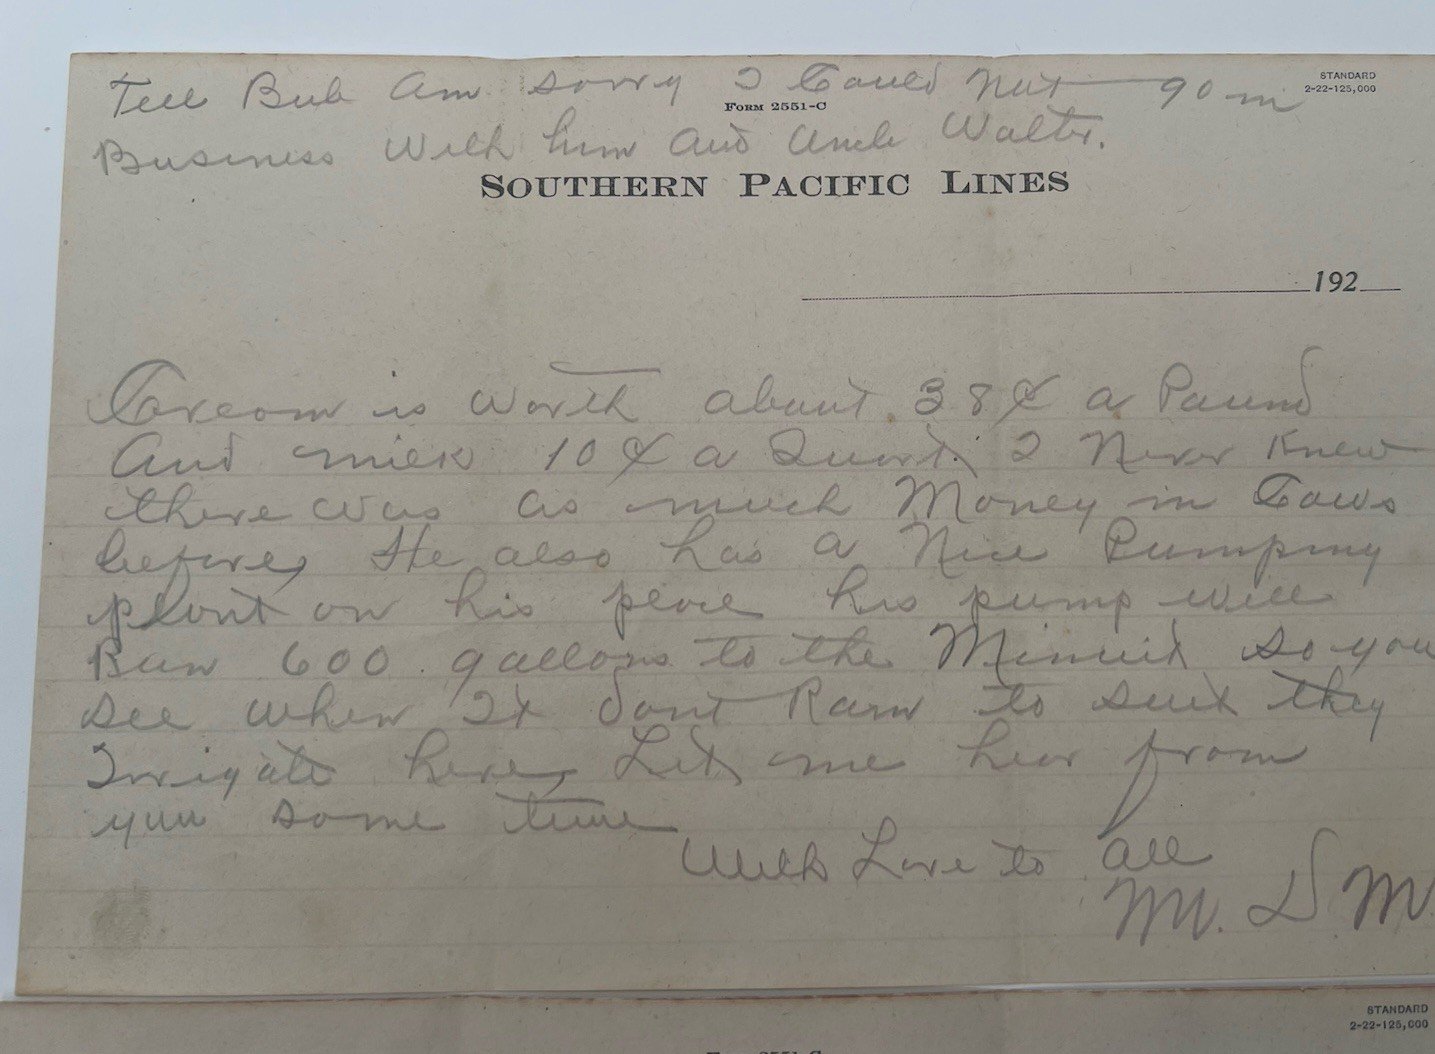 Tell Bub Am sorry I Could Not go in
STANDARD
2-22-125,000
FORM 2551-C
Business With him and Uncle Walter.
SOUTHERN PACIFIC LINES
192
Cream is worth about 38¢ a Pound
And milk 10¢ a Quart. I Never Knew
there was as much Money in Cows
before, He also has a Nice Pumping
plant on his place his pump will
Run 600 gallons to the Minuit so you
see when It dont Rain to suit they
Irigate here, Let me hear from
you some time
With Love to all
M. D M.
STANDARD
2-22-125,000